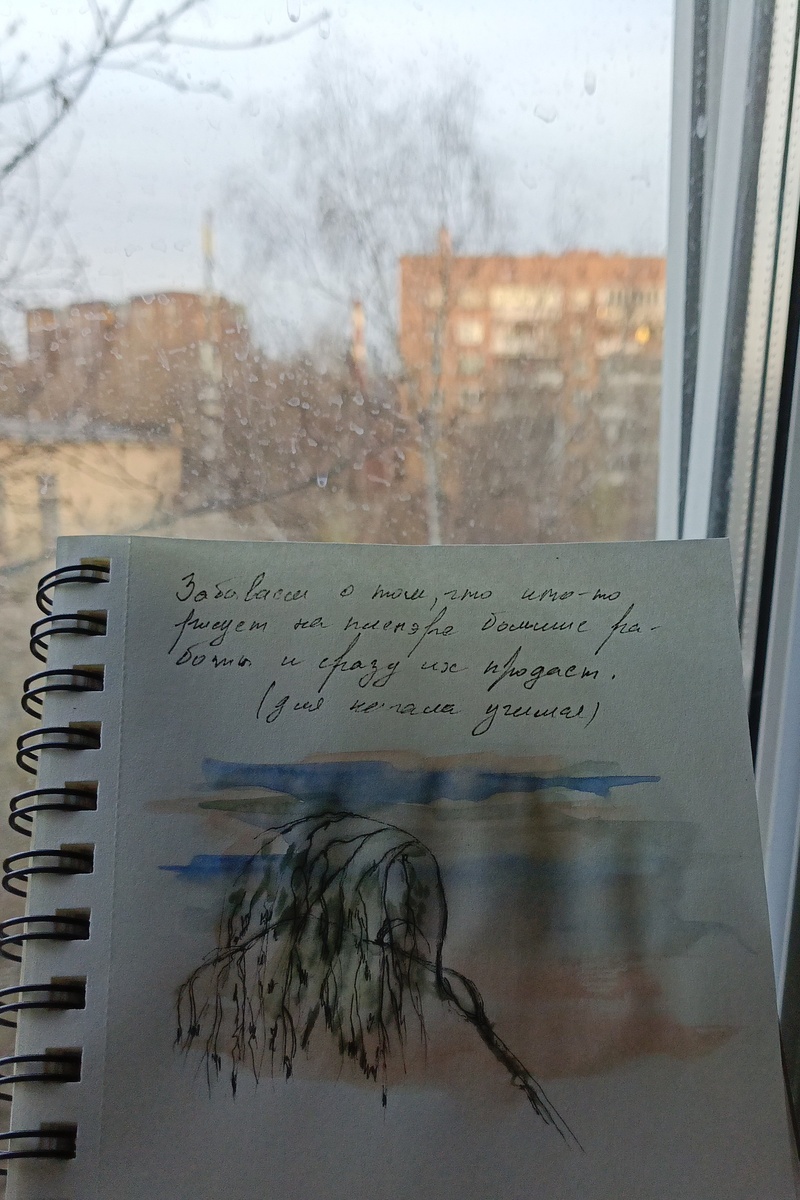 Забываем о том, что кто-то
рисует на пленэре большие ра-
боты и сразу их продает.
(для начала учимся)